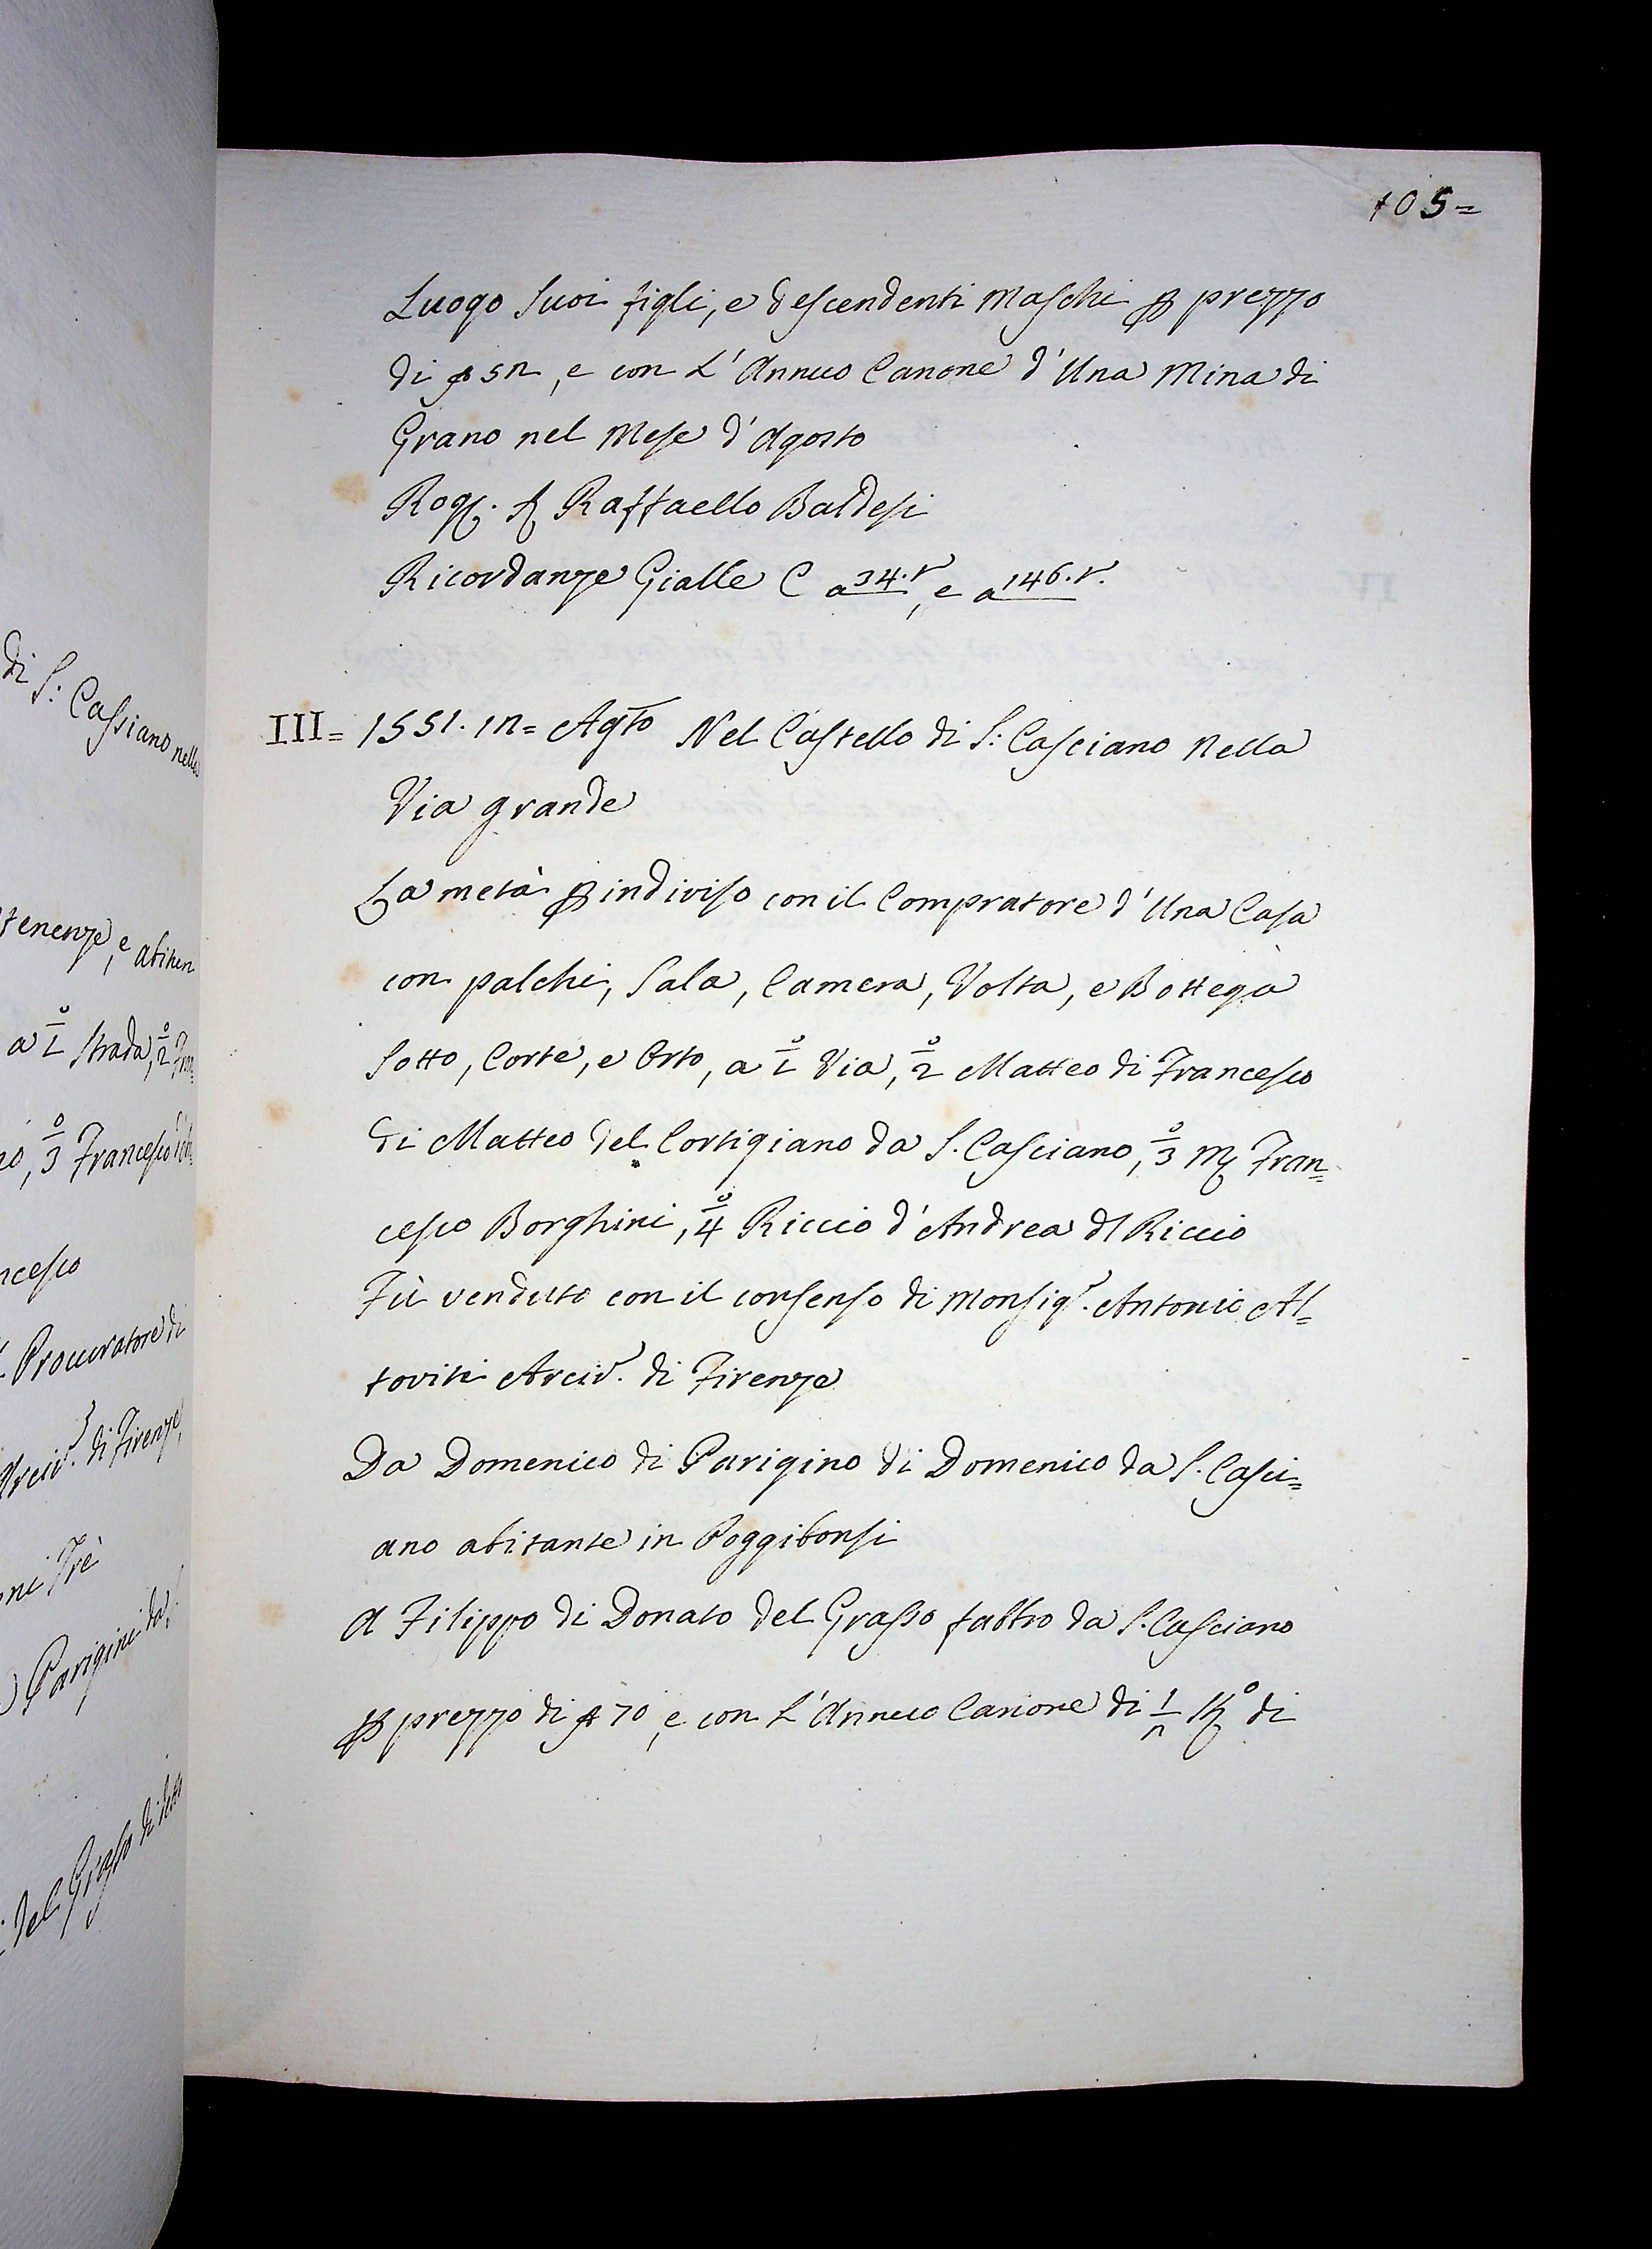 105=
Luogo Suoi figli, e descendenti Maschi p prezzo
di 52, e con L'Annuo Canone d'Una Mina di
Grano nel Mese d'Agosto
Rog. S Raffaello Baldesi
Ricordanze Gialle C a 34.r, e a 146.r.
III= 1551. 12= Agto Nel Castello di S: Casciano nella
Via grande
La metà p indiviso con il Compratore d'Una Casa
con palchi, Sala, Camera, Volta, e Bottega
Sotto, Corte, e Orto, a 1° Via, 2° Matteo di Francesco
di Matteo del Cortigiano da S. Casciano, 3° M Fran=
cesco Borghini, 4° Riccio d'Andrea dl Riccio
Fù venduto con il consenso di Monsigr. Antonio Al=
toviti Arciv. di Firenze
Da Domenico di Parigino di Domenico da S. Casci=
ano abitante in Poggibonsi
A Filippo di Donato del Grasso fabbro da S. Casciano
p prezzo di 70, e con L'Annuo Canone di 1/2 di
di S: Cassiano nella
tenenze, e abituri
a 1° Strada, 2° Fran=
no, 3° Francesco
ncesco
Procuratore di
Arciv. di Firenze,
ni Trè
Parigini da
del Grasso di detto